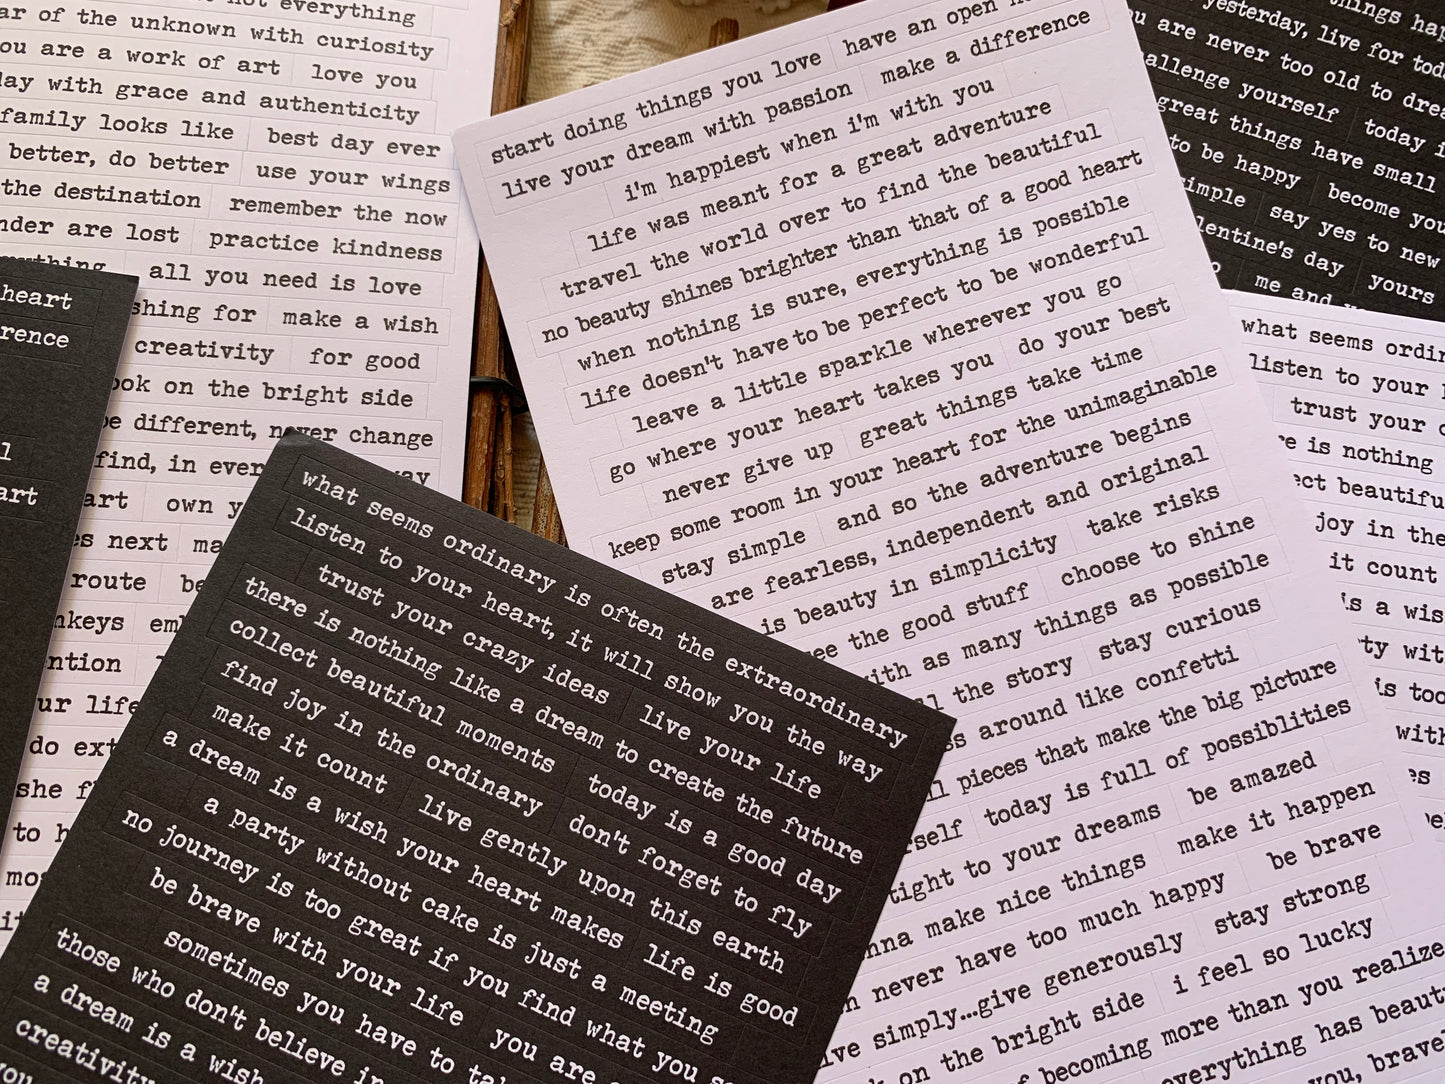 not everything
ar of the unknown with curiosity
ou are a work of art love you
lay with grace and authenticity
family looks like best day ever
better, do better use your wings
the destination remember the now
nder are lost practice kindness
all you need is love
shing for make a wish
creativity for good
ook on the bright side
be different, never change
find, in ever way
art own y
s next ma
route be
nkeys em
ntion
ur life
do ext
she f
to h
mos
it
heart
rence
l
art
start doing things you love have an open h
live your dream with passion make a difference
i'm happiest when i'm with you
life was meant for a great adventure
travel the world over to find the beautiful
no beauty shines brighter than that of a good heart
when nothing is sure, everything is possible
life doesn't have to be perfect to be wonderful
leave a little sparkle wherever you go
go where your heart takes you do your best
never give up great things take time
keep some room in your heart for the unimaginable
stay simple and so the adventure begins
are fearless, independent and original
is beauty in simplicity take risks
ee the good stuff choose to shine
with as many things as possible
ll the story stay curious
ss around like confetti
ll pieces that make the big picture
rself today is full of possiblities
tight to your dreams be amazed
nna make nice things make it happen
n never have too much happy be brave
ve simply...give generously stay strong
k on the bright side i feel so lucky
f becoming more than you realize
everything has beaut
you, brave
what seems ordinary is often the extraordinary
listen to your heart, it will show you the way
trust your crazy ideas live your life
there is nothing like a dream to create the future
collect beautiful moments today is a good day
find joy in the ordinary don't forget to fly
make it count live gently upon this earth
a dream is a wish your heart makes life is good
a party without cake is just a meeting
no journey is too great if you find what you s
be brave with your life you are
sometimes you have to ta
those who don't believe in
a dream is a wish
creativity
you
things hap
yesterday, live for tod
u are never too old to drea
allenge yourself today i
great things have small
to be happy become you
simple say yes to new
lentine's day yours
me and y
what seems ordin
listen to your
trust your c
e is nothing
ect beautifu
joy in the
it count
s a wis
ty wit
is too
with
es